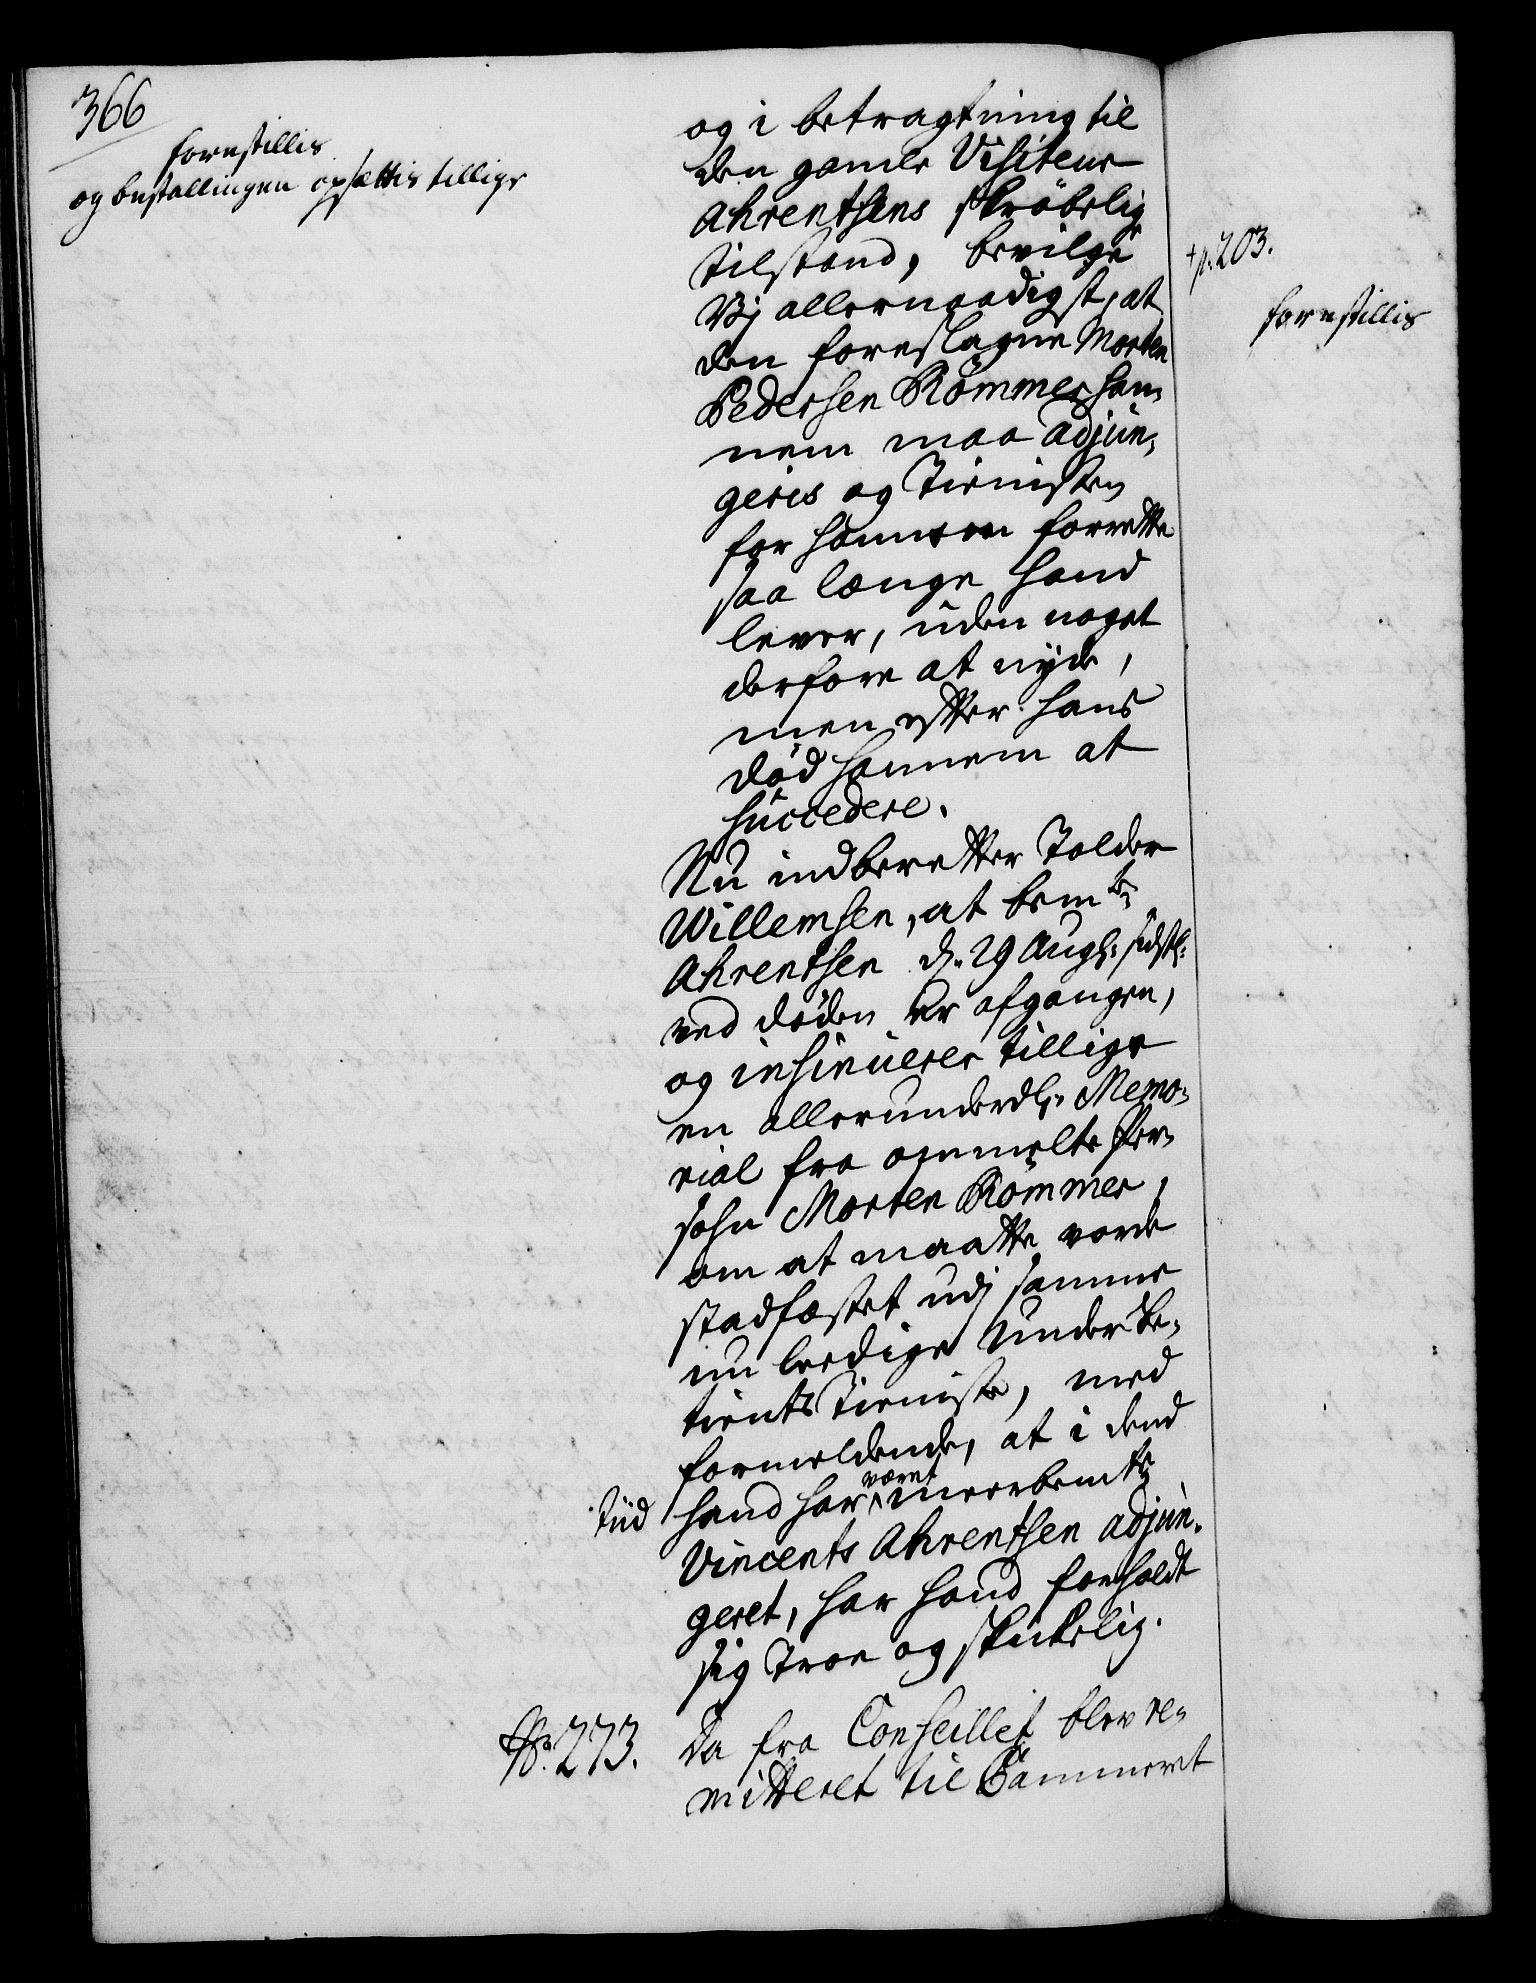 366
forestillis
og bestallingen opsættis tillige
og i betragtning til
den gamle Visiteur
Ahrentsens skrøbelig
tilstand, bevilge
Vj allernaadigst, at
den foreslagne Morten
Pedersen Römmer han,
nem maa adjun,
geres og Tienisten
for hannem forrette
saa længe hand
lever, uden noget
derfore at nyde,
men efter hans
død hannem at
succedere.
Nu indberetter Tolder
Willemsen, at bemte
Ahrentsen d. 29 Augs: sidstl:
ved døden er afgangen,
og insinuerer tillige
en allerunderdl: Memo,
rial fra ommelte Per,
sohn Morten Römmer,
om at maatte vorde
stadfæstet udj samme
nu leedige Under Be,
tients Tieniste, med
formeldende, at i dend
Tiid hand har været meerbemte
Vincents Ahrentsen adjun,
geret, har hand forholdt
sig troe og skikelig.
No. 273. Da fra Conseillet blev re,
mitteret til Cammeret
+p. 203.
forestillis